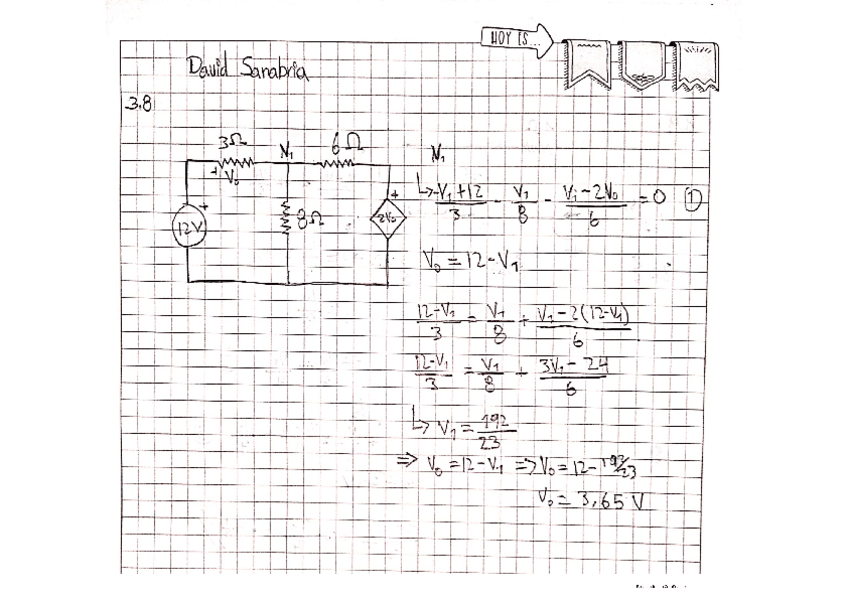 HOY ES...
David Sanabria
3.8
3Ω N₁ 6Ω
+ V₀
12V +
8Ω
2V₀ +
N₁
↳ -V₁+12/3 - V₁/8 - V₁-2V₀/6 = 0 ①
V₀ = 12-V₁
12-V₁/3 = V₁/8 + V₁-2(12-V₁)/6
12-V₁/3 = V₁/8 + 3V₁-24/6
↳ V₁ = 192/23
⇒ V₀ = 12-V₁ ⇒ V₀ = 12-192/23
V₀ = 3,65 V